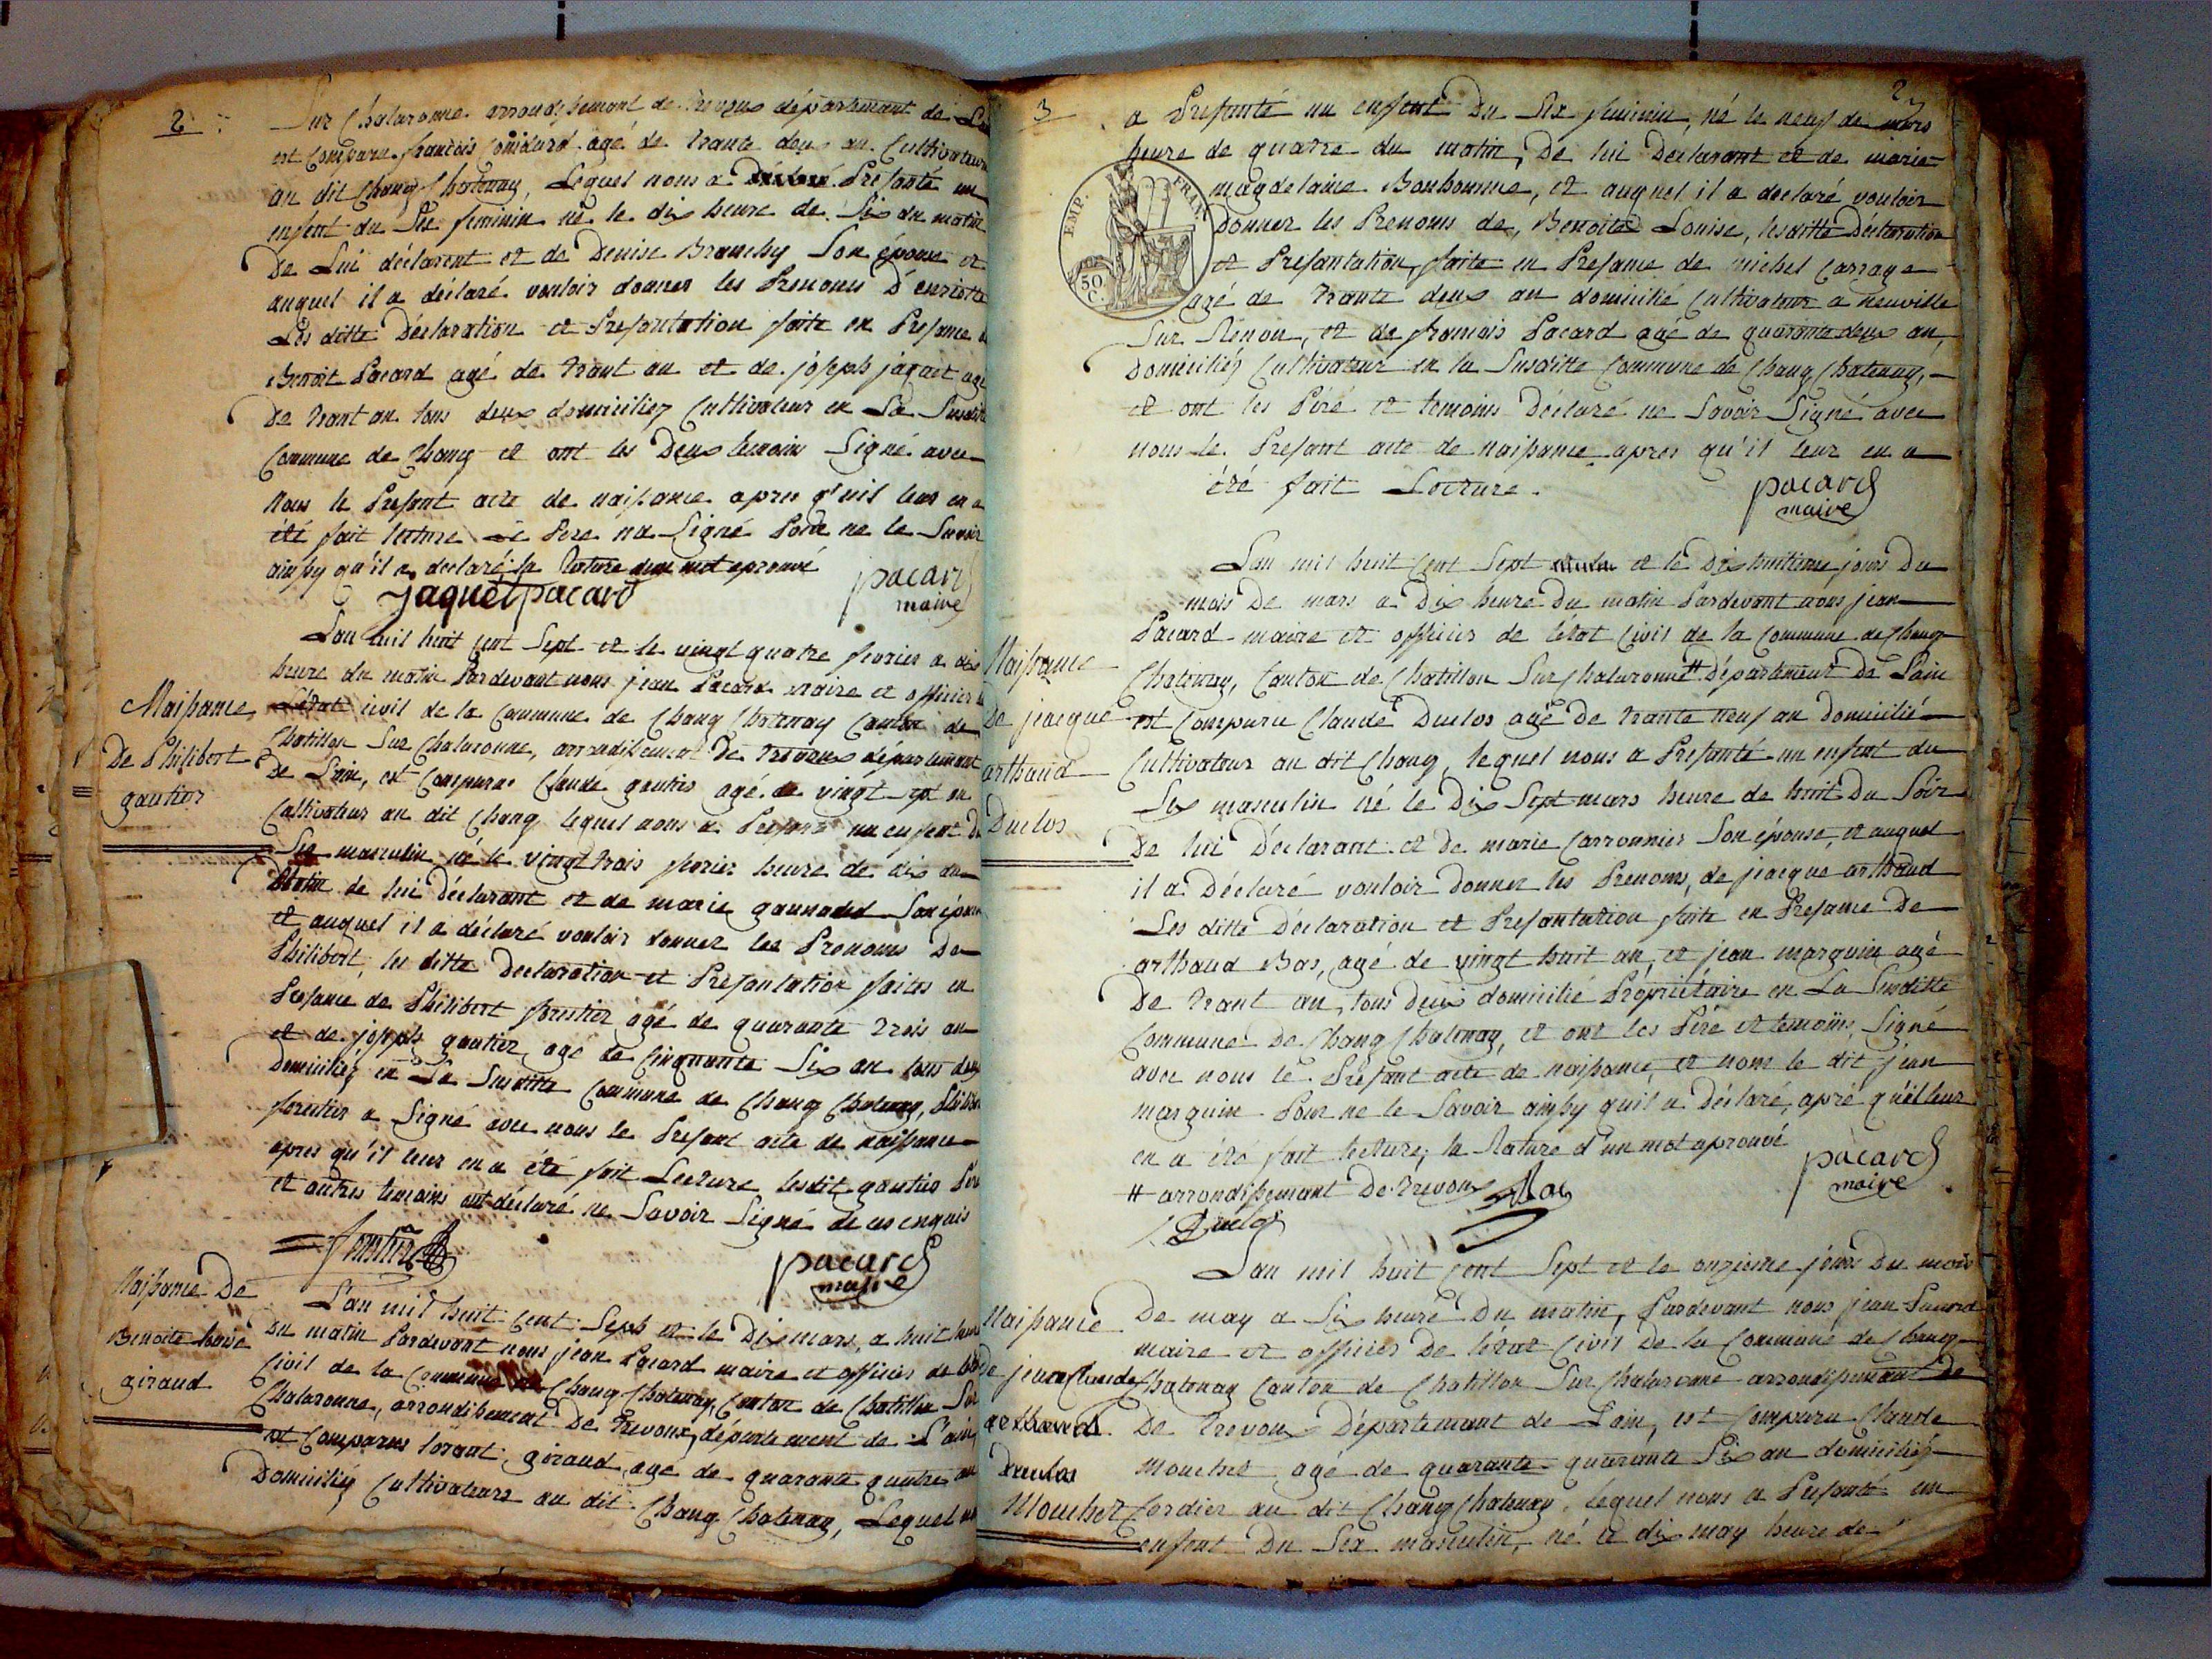 2
Sur Chalaronne arrondissement de Trevoux département de
est comparu francois agé de trante deux an Cultivateur
au dit Chang Chatenay, Lequel nous a Présanté un
enfent du Sex feminin né le dix heure de Six du matin
De Lui déclarent et de Denise Branchy Son épouse et
auquel il a déclaré vouloir donner les Prenoms D'enriette
Les ditte Déclaration et Presentation faite en Presance
Benoit Pacard agé de trant an et de joseph jaquet agé
De trant an tous deux domiciliez Cultivateur en La Susditte
Commune de Chang et ont les Deux temoins Signé avec
Nous le Presant acte de naissance apres qu'uil leur en a
été fait lecture Le Pere na Signé Pour ne le Savoir
ainsy qu'il a déclaré; la Rature deux mot aprouvé
jaquet pacard pacard
maire
Naissance
De Philibert
gautier
Lan mil huit Cent Sept et le vingt quatre fevrier a dix
heure du matin Pardevant nous jean Pacard maire et officier
Létat civil de la Commune de Chang Chatenay Canton de
Chatillon Sur Chalaronne, arrondissement De Trevoux département
De Lain, est Comparu Claude gautier agé de vingt sept an
Cultivateur au dit Chang lequel nous a Presanté un enfent Du
Sex masculin né le vingt trois fevrier heure de dix du
Matin de lui Déclarant et de marie Son épouse
et auquel il a déclaré vouloir donner les Prenoms De
Philibert, les ditte Declaration et Présantation faites en
Presance de Philibert forestier agé de quarante trois an
et de joseph gautier agé de Cinquante Six an tous deux
Domiciliéz en La Susditte Commune de Chang Chatenay, Philibert
forestier a Signé avec nous le Presant acte de naissance
apres qu'il leur en a été fait Lecture lesdit gautier Pere
et autres temoins ont déclaré ne Savoir Signé de ces enquis
forestier
pacard
maire
Naissance De
Benoite Louise
giraud
L'an mil huit Cent Sept et le Dix mars, a huit heure
Du matin Pardevant nous jean Pacard maire et officier de
Civil de la Commune de Chang Chatenay, Canton de Chatillon Sur
Chalaronne, arrondissement De Trevoux, département de L'ain,
est Comparus lorant giraud, agé de quarante quatre an
Domiciliéz Cultivateurs au dit Chang Chatenay, Lequel nous
3
2
a Presanté un enfent Du Sex feminin, né le neuf de mars
heure de quatre du matin, De lui Declarant et de marie
magdelaine Bonhomme, et auquel il a declaré vouloir
donner les Prenoms de, Benoite Louise, lesditte Déclaration
et Presantation, faite en Presance de michel Carrage
agé de trante deux an domicilié Cultivateur a neuville
Sur Renon, et de francois Pacard agé de quarante deux an,
Domiciliéz Cultivateur en la Susditte Commune de Chang Chatenay,
et ont les Péré et temoins Déclaré ne Savoir Signé avec
nous le Presant acte de naissance apres qu'il leur en a
été fait Lecture.
pacard
maire
EMP. FRAN.
50
C.
Naissance
De jacque
arthaud
Duclos
Lan mil huit Cent Sept et le Dix huitieme jours Du
mois De mars a Dix heure Du matin Pardevant nous jean
Pacard maire et officier de létat Civil de la Commune de Chang
Chatenay, Canton de Chatillon Sur Chalaronne # Département De Lain
est Comparu Claude Duclos agé de trante neuf an domicilié
Cultivateur au dit Chang, lequel nous a Presanté un enfent du
Sex masculin né le Dix Sept mars heure de huit Du Soir
De lui Déclarant et De marie Carronnier Son épouse, et auquel
il a Déclaré vouloir Donner les Prenoms, de jacque arthaud
Les ditte Déclaration et Presantation faite en Presance De
arthaud Bas, agé de vingt huit an, et jean marguin agé
De trant an, tous Deux domicilié Propriétaire en La Susditte
Commune De Chang Chatenay, et ont les Péré et temoins Signé
avec nous le Présant acte de naissance, et nom le dit jean
marguin Pour ne le Savoir ainsy quil a Déclaré, apré qu'il leur
en a été fait lecture, la Rature d'un mot aprouvé
# arrondissement De Trevoux
Bas
pacard
maire
Duclos
Naissance
De jean Claude
arthaud
Duclos
Mouchet
Lan mil huit Cent Sept et le onzieme jours Du mois
De may a Six heure Du matin, Pardevant nous jean Pacard
maire et officier De létat Civil De la Commune de Chang
Chatenay Canton de Chatillon Sur Chalaronne arrondissement De
De Trevoux Département de Lain, est Comparu Claude
Mouchet agé de quarante quarante Six an domiciliéz
Cordier au dit Chang Chatenay, lequel nous a Presanté un
enfent Du Sex masculin, né le dix may heure de